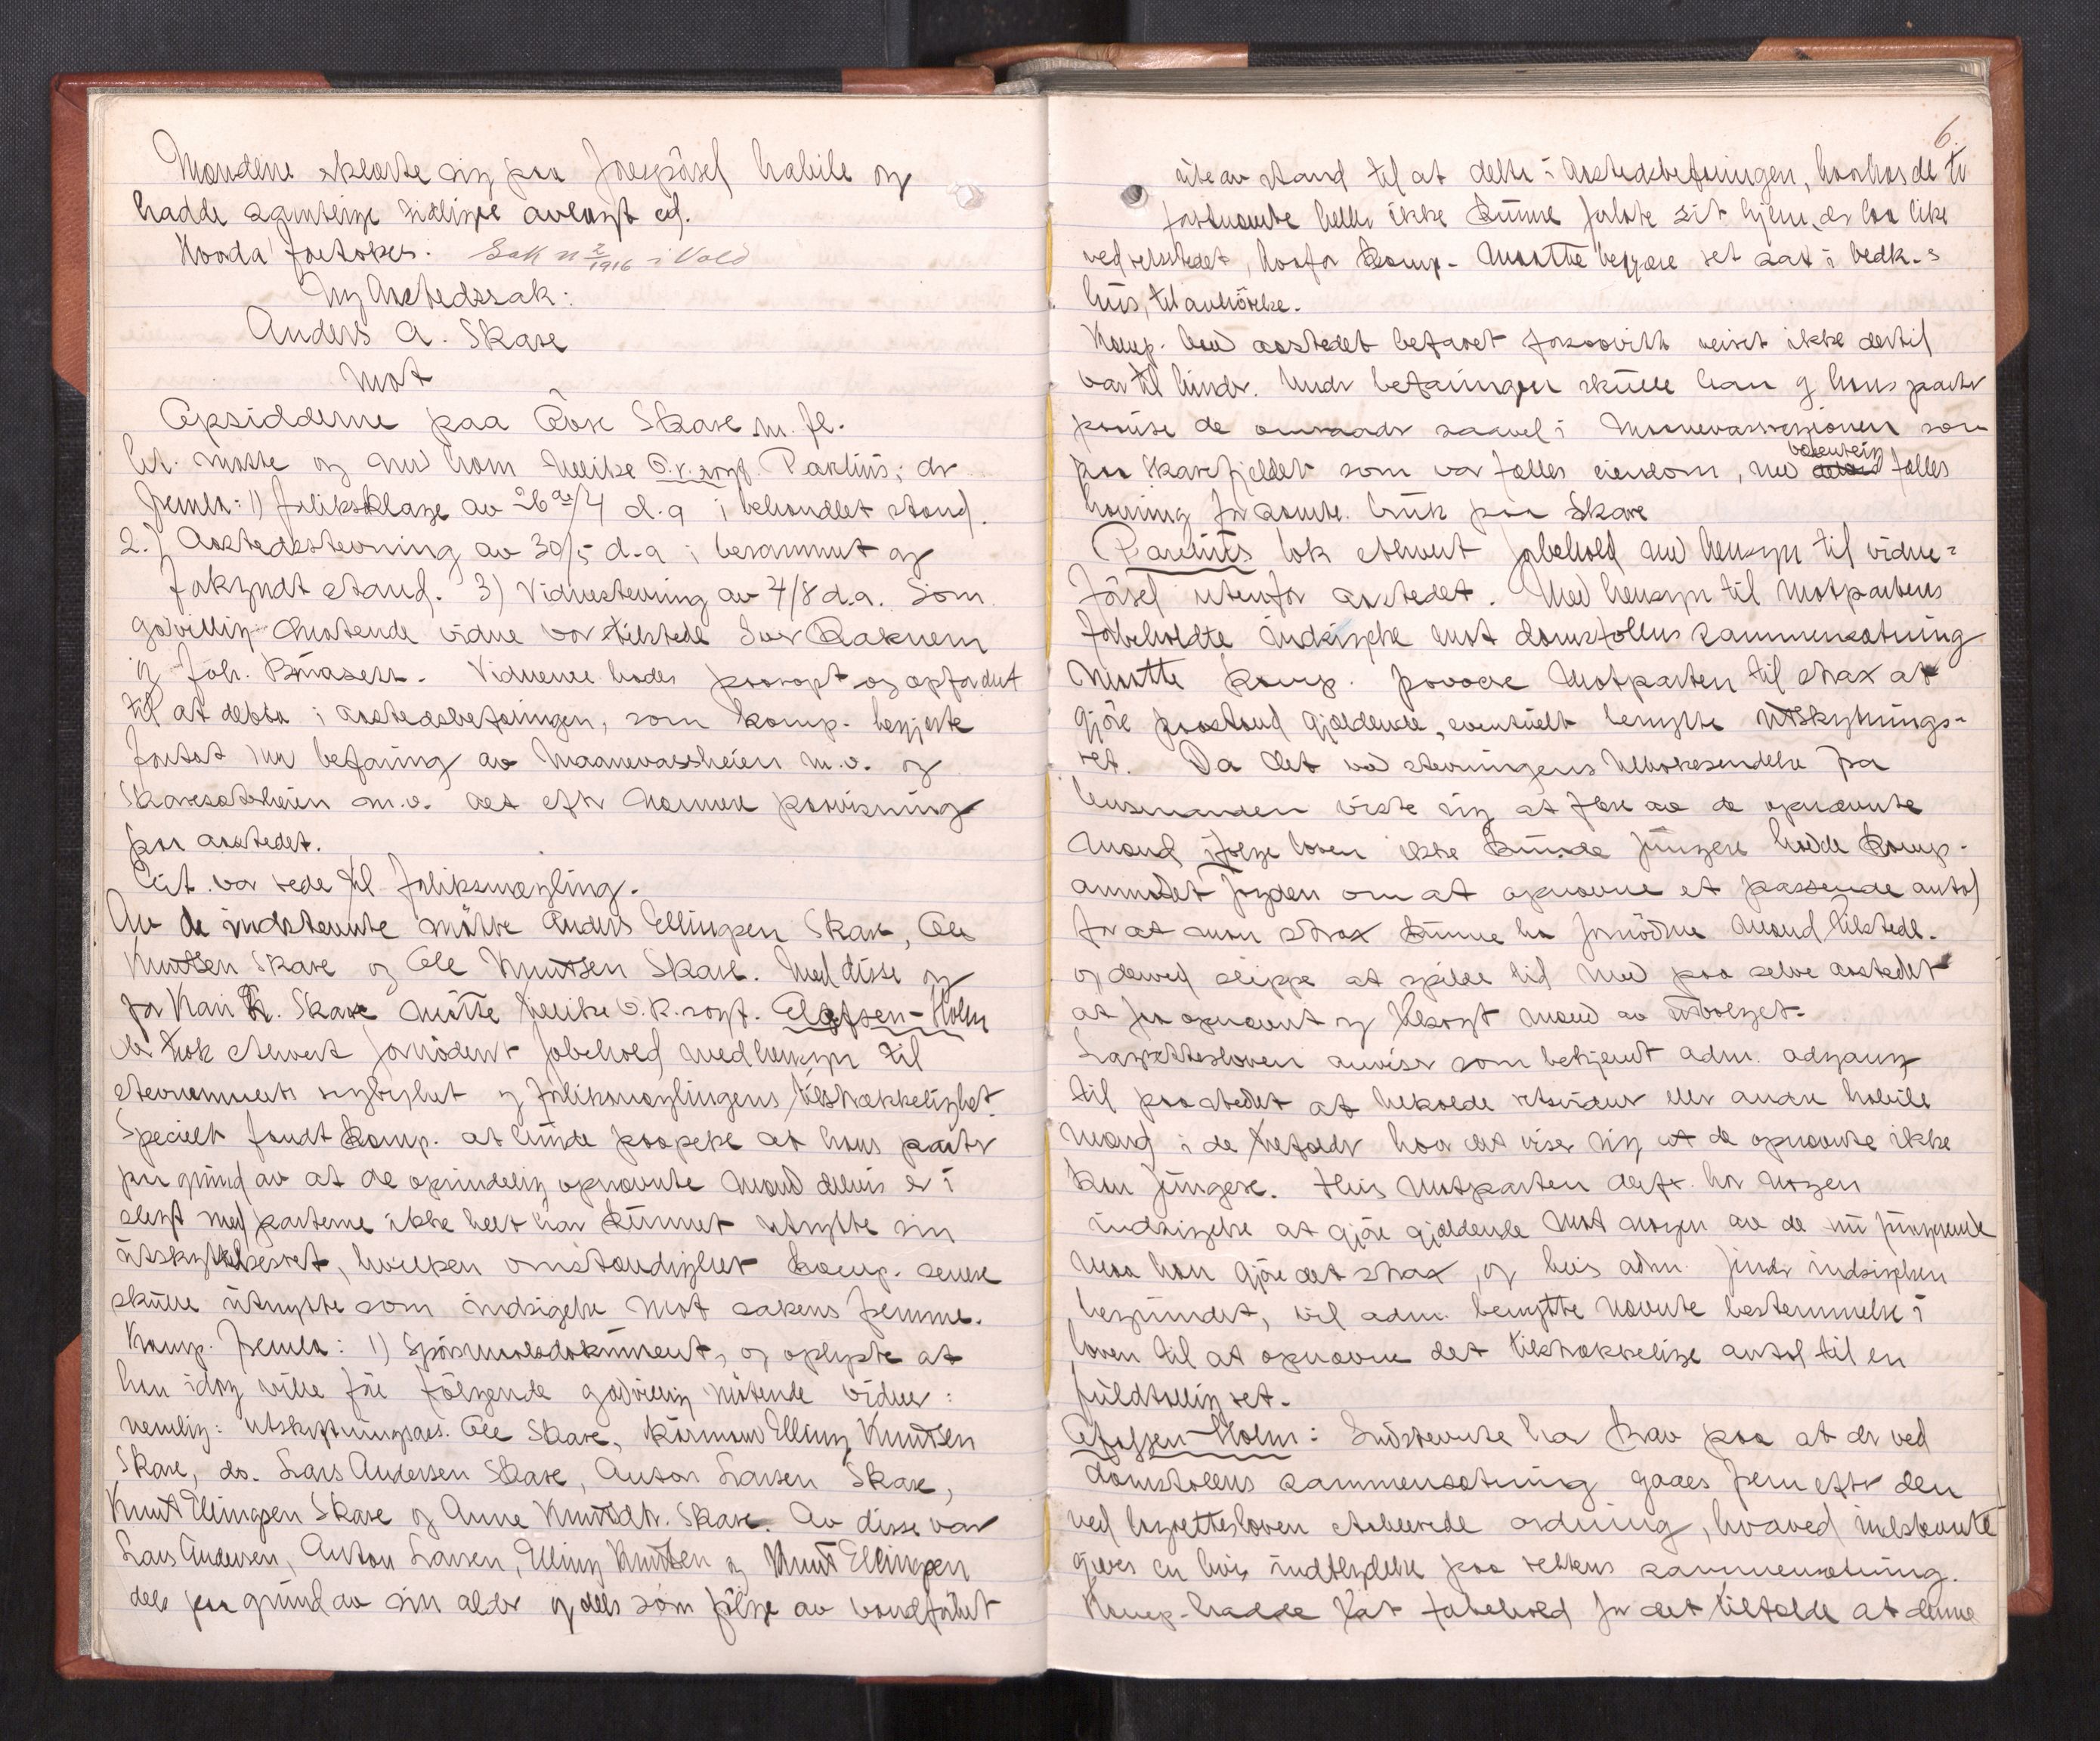 Mændene erklærte sig paa forespörsel habile og
hadde samtlige tidligere avlagt ed.
Hvorda foretokes: Sak n 2/1916 i Vold
Ny Aastedssak:
Anders A. Skare
mot
Opsidderne paa Övre Skare m. fl.
Cit. mötte og med ham likeledes O.r.sagf. Paulins; der
fremla: 1) forliksklage av 26de/4 d.a i behandlet stand.
2.) Aastedsstevning av 30/5 d.a i berammet og
forkyndt stand. 3) Vidnestevning av 4/8 d.a. Som
godvillig mötende vidne var tilstede Iver Raknem
og Joh. Brüaseth. Vidnerne hades paaropt og opfordret
til at delta i aastedsbefaringen, som komp. begjærte
foretat ved befaring av Maanevassheien m.v. og
Skaresæterheien m.v. alt efter nærmere paavisning
paa aastedet.
Cit. var rede til forliksmægling.
Av de indstevnte mötte Anders Ellingsen Skare, Ole
Knutsen Skare og Ole Knutsen Skare. Med disse og
for Kari K. Skare mötte likeledes O.R.sagf. Olafsen-Holm
der tok ethvert fornödent forbehold med hensyn til
stevnemaalets lovlighet og forliksmæglingens tilstrækkelighet.
Specielt fandt komp. at burde paapeke at hans parter
paa grund av at de oprindelig opnævnte mænd delvis er i
slegt med parterne ikke helt har kunnet utnytte sin
utskytelsesret, hvilken omstændighet komp. senere
skulde utnytte som indsigelse mot sakens fremme.
Komp. fremla: 1) Spörsmaalsdokument, og oplyste at
han idag vilde före fölgende godvillig mötende vidner:
nemlig: utskiftningsass. Ole Skare, kaarmand Elling Knutsen
Skare, do. Lars Andersen Skare, Anton Larsen Skare,
Knut Ellingsen Skare og Anne Knutsdtr. Skare. Av disse var
Lars Andersen, Anton Larsen, Elling Knutsen og Knut Ellingsen
dels paa grund av sin alder og dels som fölge av vandförhet
6.
ute av stand til at delta i aastedsbefaringen, hvorhos de to
förstnævnte heller ikke kunne forlate sit hjem, der laa like
ved retsstedet, hvorfor komp. maatte begjære ret sat i vedk.s
hus, til avhörelse.
Komp. bad aastedet befaret forsaavidt veiret ikke dertil
var til hinder. Under befaringen skulde han og hans parter
paavise de omraader saavel i Maanevassregionen som
paa Skarefjeldet som var fælles eiendom, med vedvarende fælles
havning for samtl. bruk paa Skare
Paulins tok ethvert forbehold med hensyn til vidne-
försel utenfor aastedet. Med hensyn til motpartens
forbeholdte indsigelse mot domstolens sammensætning
maatte komp. provocere motparten til strax at
gjöre paastand gjældende, eventuelt benytte utskytnings-
ret. Da det ved stevningens tilbakesendelse fra
lensmanden viste sig at flere av de opnævnte
mænd ifölge loven ikke kunde fungere hadde komp.
anmodet fogden om at opnævne et passende antal
for at man strax kunne ha fornödne mænd tilstede.
og derved slippe at spilde tid med paa selve aastedet
at faa opnævnt og tilsagt mænd av utvalget.
Lagrettesloven anviser som bekjendt adm. adgang
til paa stedet at tilkalde retsvidner eller andre habile
mænd i de tilfælde hvor det viser sig at de opnævnte ikke
kan fungere. Hvis motparten derfor har nogen
indsigelse at gjöre gjældende mot nogen av de nu fungerende
maa han gjöre det strax, og hvis adm. finder indsigelsen
begrundet, vil adm. benytte nævnte bestemmelse i
loven til at opnævne det tilstrækkelige antal til en
fuldtallig ret.
Olafsen-Holm: Indstevnte har krav paa at der ved
domstolens sammensætning gaaes frem efter den
ved lagretteloven etablerede ordning, hvorved indstevnte
gives en hvis indflydelse paa rettens sammensætning.
Komp. hadde tat forbehold for det tilfælde at denne